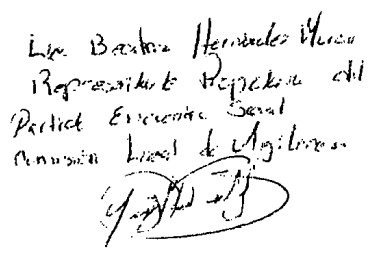 Lic. Beatriz Hernández
Representante Propietario del
Partido Encuentro Social
Comisión Local de Vigilancia